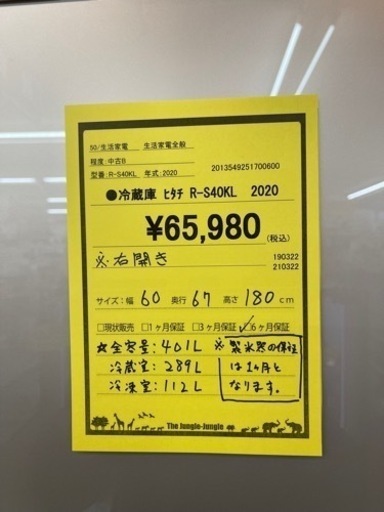 50/生活家電 生活家電全般
程度:中古B
型番:R-S40KL 年式:2020 2013549251700600
●冷蔵庫 ﾋﾀﾁ R-S40KL 2020
¥65,980 (税込)
※右開き
190322
210322
サイズ:幅 60 奥行 67 高さ 180 cm
□現状販売 □1ヶ月保証 □3ヶ月保証 ☑6ヶ月保証
☆全容量:401L
冷蔵室:289L
冷凍室:112L
※製氷器の保証
は1ヶ月と
なります。
The Jungle-Jungle